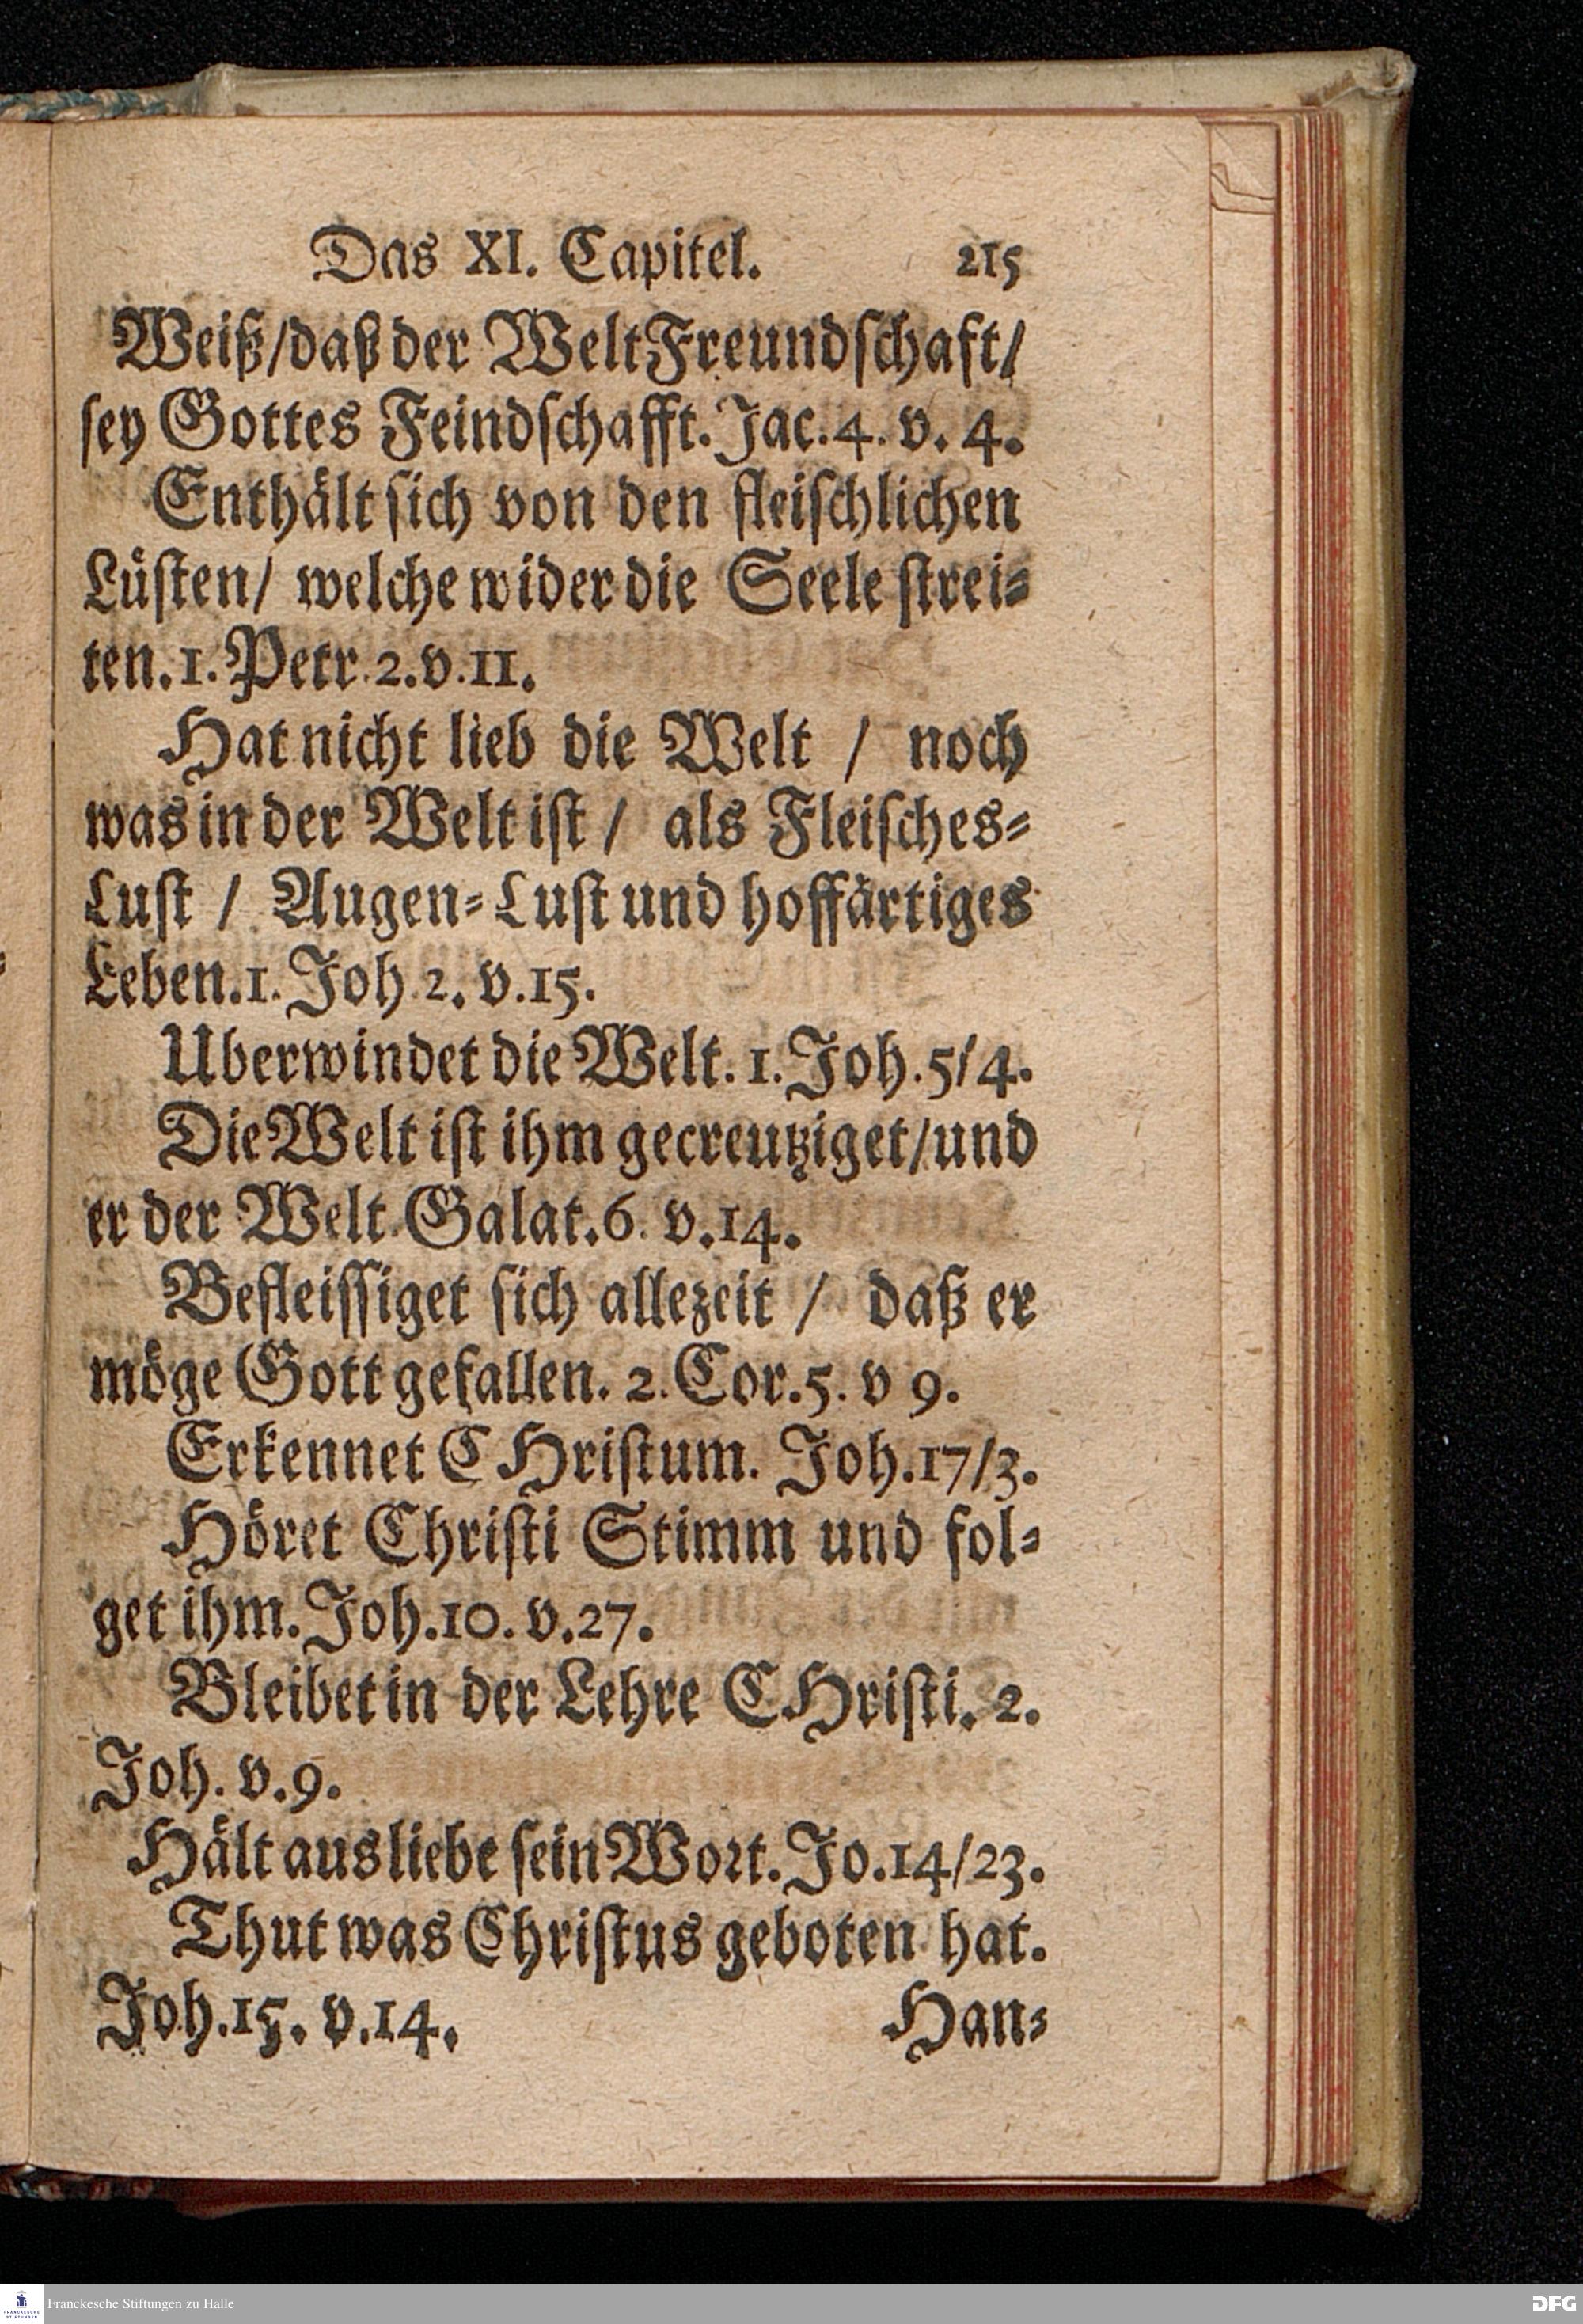 Das XI. Capitel. 215
Weiß/daß der Welt Freundſchaft/
ſey Gottes Feindſchafft. Jac. 4. v. 4.
Enthält ſich von den fleiſchlichen
Lüſten/ welche wider die Seele ſtrei-
ten. 1. Petr. 2. v. 11.
Hat nicht lieb die Welt / noch
was in der Welt iſt / als Fleiſches-
Luſt / Augen-Luſt und hoffärtiges
Leben. 1. Joh 2. v. 15.
Uberwindet die Welt. 1. Joh. 5/4.
Die Welt iſt ihm gecreutziget/und
er der Welt. Galat. 6. v. 14.
Befleiſſiget ſich allezeit / daß er
möge Gott gefallen. 2. Cor. 5. v 9.
Erkennet CHriſtum. Joh. 17/3.
Höret Chriſti Stimm und fol-
get ihm. Joh. 10. v. 27.
Bleibet in der Lehre CHriſti. 2.
Joh. v. 9.
Hält aus liebe ſein Wort. Jo. 14/23.
Thut was Chriſtus geboten hat.
Joh. 15. v. 14. Han-
Franckesche Stiftungen zu Halle
FRANCKESCHE
STIFTUNGEN
DFG